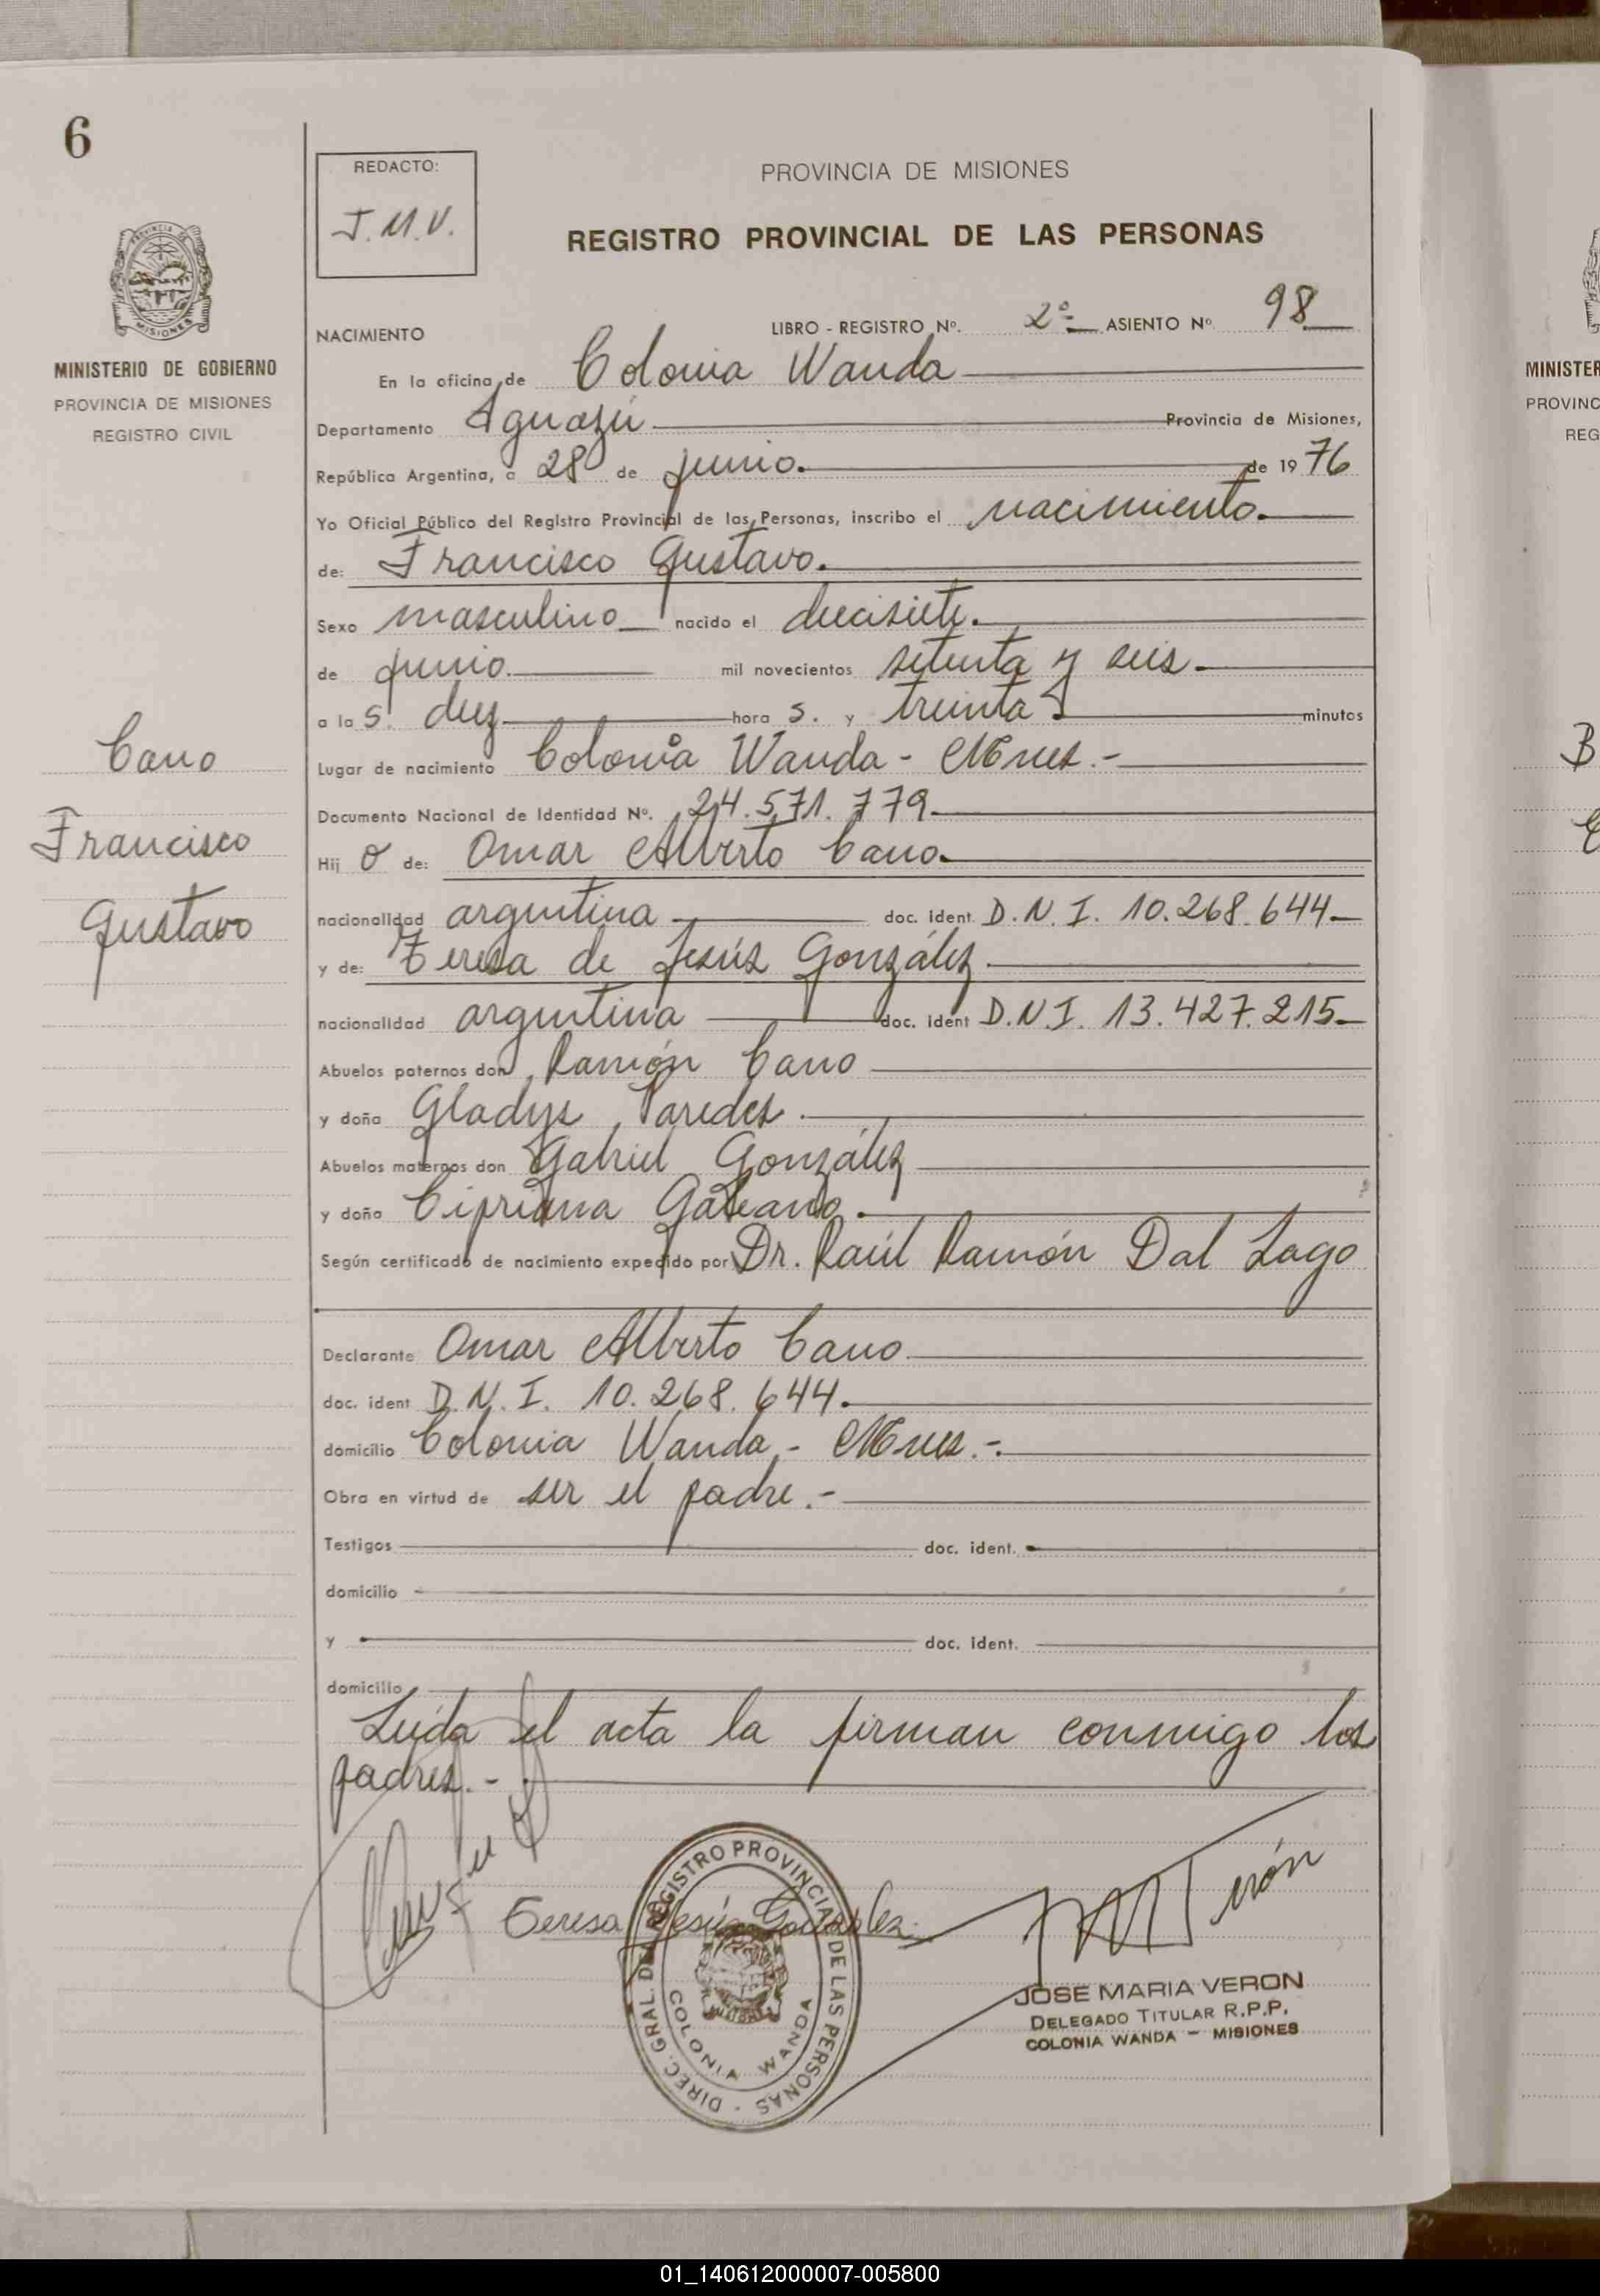 6
PROVINCIA DE MISIONES
MINISTERIO DE GOBIERNO
PROVINCIA DE MISIONES
REGISTRO CIVIL
Cano
Francisco
Gustavo
REDACTO:
J.M.V.
PROVINCIA DE MISIONES
REGISTRO PROVINCIAL DE LAS PERSONAS
NACIMIENTO LIBRO - REGISTRO Nº. 2º ASIENTO Nº 98
En la oficina de Colonia Wanda
Departamento Iguazú Provincia de Misiones,
República Argentina, a 28 de junio. de 1976
Yo Oficial Público del Registro Provincial de las Personas, inscribo el nacimiento.
de: Francisco Gustavo.
Sexo masculino nacido el diecisiete.
de junio. mil novecientos setenta y seis.
a las diez hora s. y treinta minutos
Lugar de nacimiento Colonia Wanda - Mnes.-
Documento Nacional de Identidad Nº. 24.571.779.
Hij o de: Omar Alberto Cano.
nacionalidad argentina doc. ident. D.N.I. 10.268.644
y de: Teresa de Jesús González
nacionalidad argentina doc. ident D.N.I. 13.427.215
Abuelos paternos don Ramón Cano
y doña Gladys Paredes.
Abuelos maternos don Gabriel González
y doña Cipriana Galeano.
Según certificado de nacimiento expedido por Dr. Raúl Ramón Dal Lago
Declarante Omar Alberto Cano
doc. ident D.N.I. 10.268.644.
domicilio Colonia Wanda - Mnes.-
Obra en virtud de ser el padre.-
Testigos doc. ident.
domicilio
y doc. ident.
domicilio
Leída el acta la firman conmigo los
padres.-
Teresa Jesús González
DIREC. GRAL. DEL REGISTRO PROVINCIAL DE LAS PERSONAS -
COLONIA WANDA
JOSE MARIA VERON
DELEGADO TITULAR R.P.P.
COLONIA WANDA - MISIONES
MINISTER
PROVINC
REG
B
01_140612000007-005800